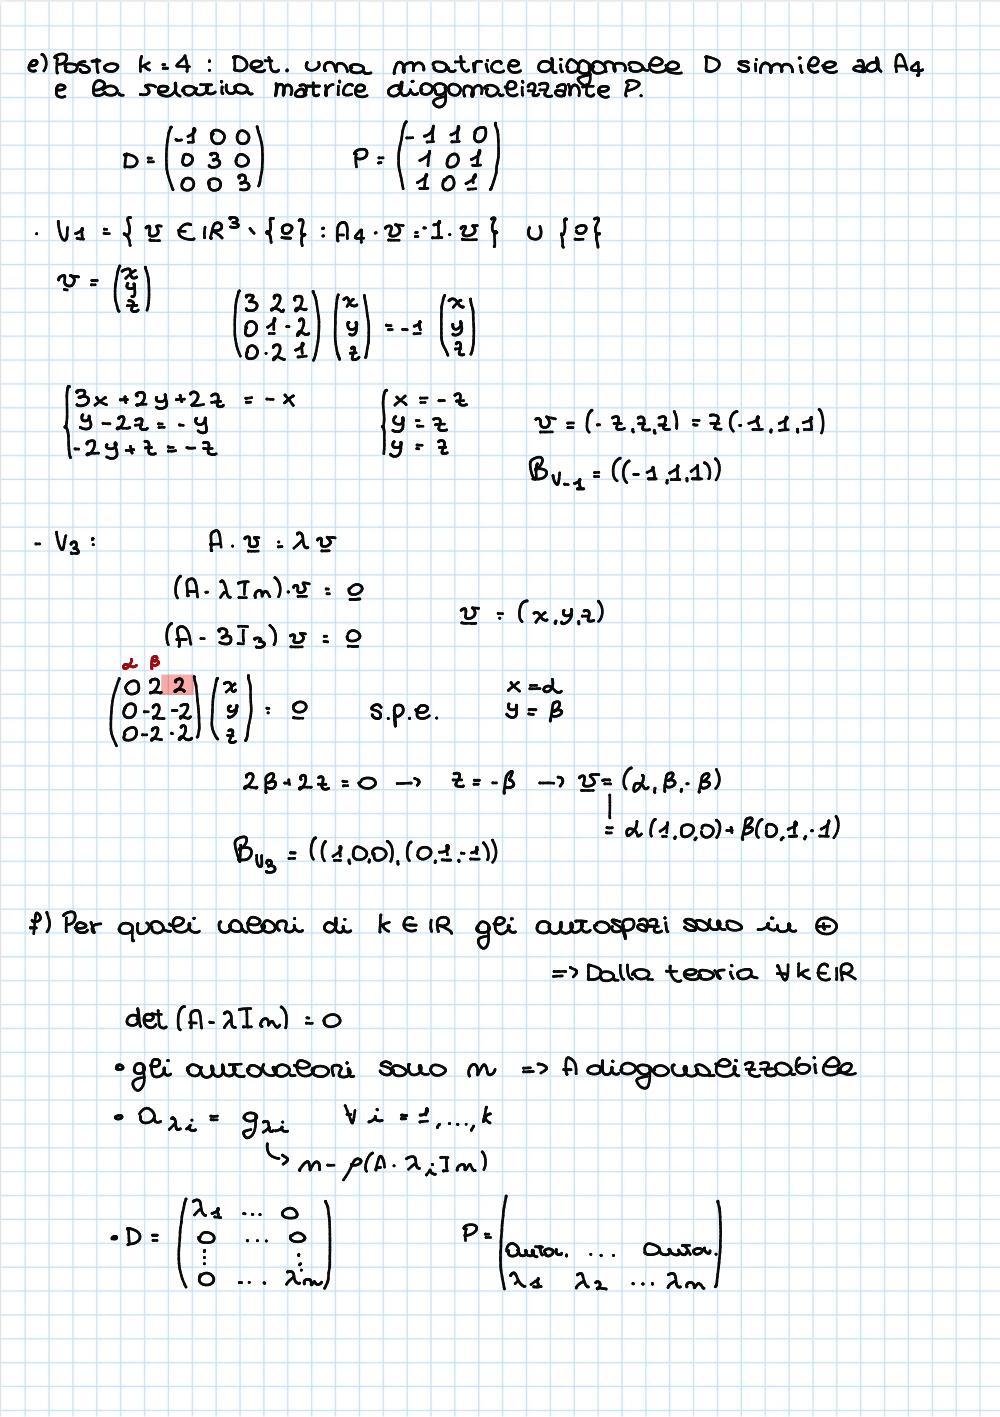 e) Posto k=4 : Det. una matrice diagonale D simile ad A4
e la relativa matrice diagonalizzante P.
D = (-1 0 0      P = (-1 1 0
0 3 0      1 0 1
0 0 3)      1 0 1)
. V1 = { v ∈ IR³ \ {0} : A4 · v = -1 · v } ∪ {0}
v = (x
y
z)
(3 2 2) (x) = -1 (x)
(0 1 -2) (y) (y)
(0 -2 1) (z) (z)
{3x + 2y + 2z = -x      {x = -z
y - 2z = -y      y = z      v = (-z,z,z) = z(-1,1,1)
-2y + z = -z      y = z
B V-1 = ((-1,1,1))
- V3 :      A · v = λ v
(A - λIn) · v = 0
v = (x,y,z)
(A - 3I3) v = 0
α β
(0 2 2) (x)      x = α
(0 -2 -2) (y) = 0      s.p.e.      y = β
(0 -2 -2) (z)
2β + 2z = 0 → z = -β → v = (α, β, -β)
= α(1,0,0) + β(0,1,-1)
B V3 = ((1,0,0),(0,1,-1))
f) Per quali valori di k ∈ IR gli autospazi sono in ⊕
=> Dalla teoria ∀k∈IR
det (A - λIn) = 0
• gli autovalori sono n => A diagonalizzabile
• a λi = g λi      ∀ i = 1,...,k
↳ n - ρ(A - λiIn)
• D = (λ1 ... 0      P = (
0 ... 0      autov. ... autov.
⋮      ⋮
0 ... λn)      λ1 λ2 ... λn)